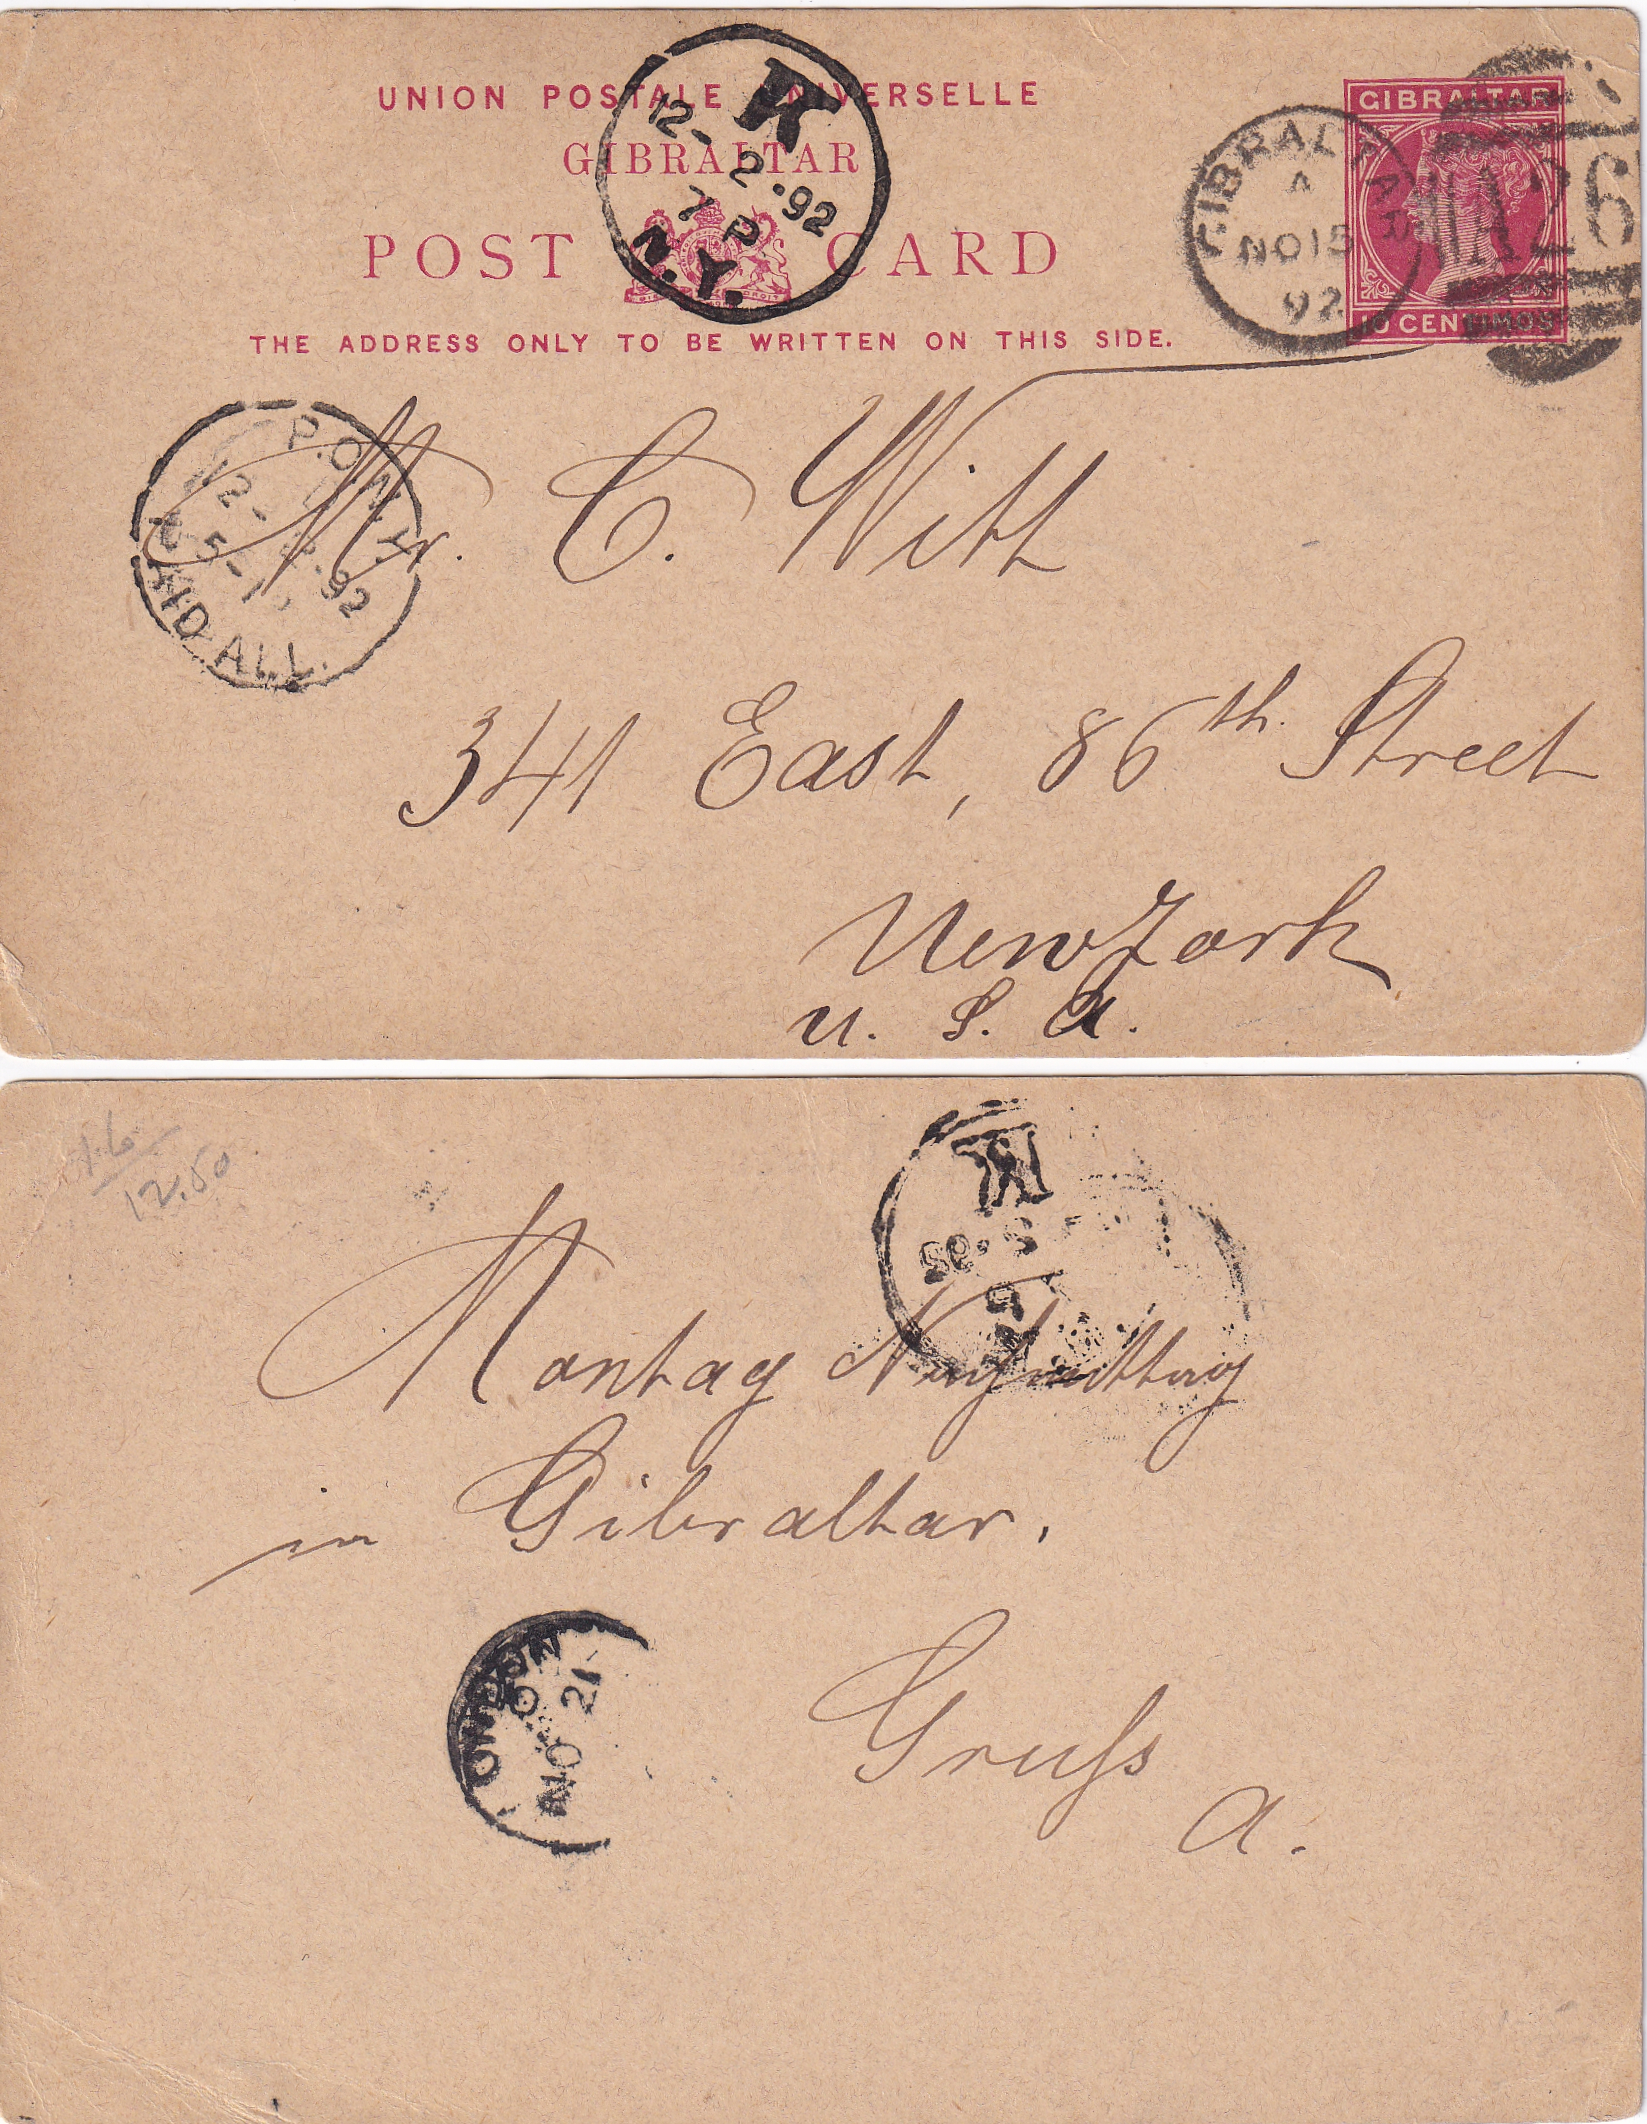 UNION POSTALE UNIVERSELLE
GIBRALTAR
POST CARD
THE ADDRESS ONLY TO BE WRITTEN ON THIS SIDE.
K
12-2.92
7 P
N.Y.
GIBRALTAR
A
NO 15
92
A26
GIBRALTAR
10 CENTIMOS
P.O.N.Y.
12-2.92
PAID ALL.
Mr. C. Witt
341 East, 86th. Street
New York
U. S. A.
12.50
Montag Nachmittag
in Gibraltar.
LONDON
NO 21
Gruss
A.